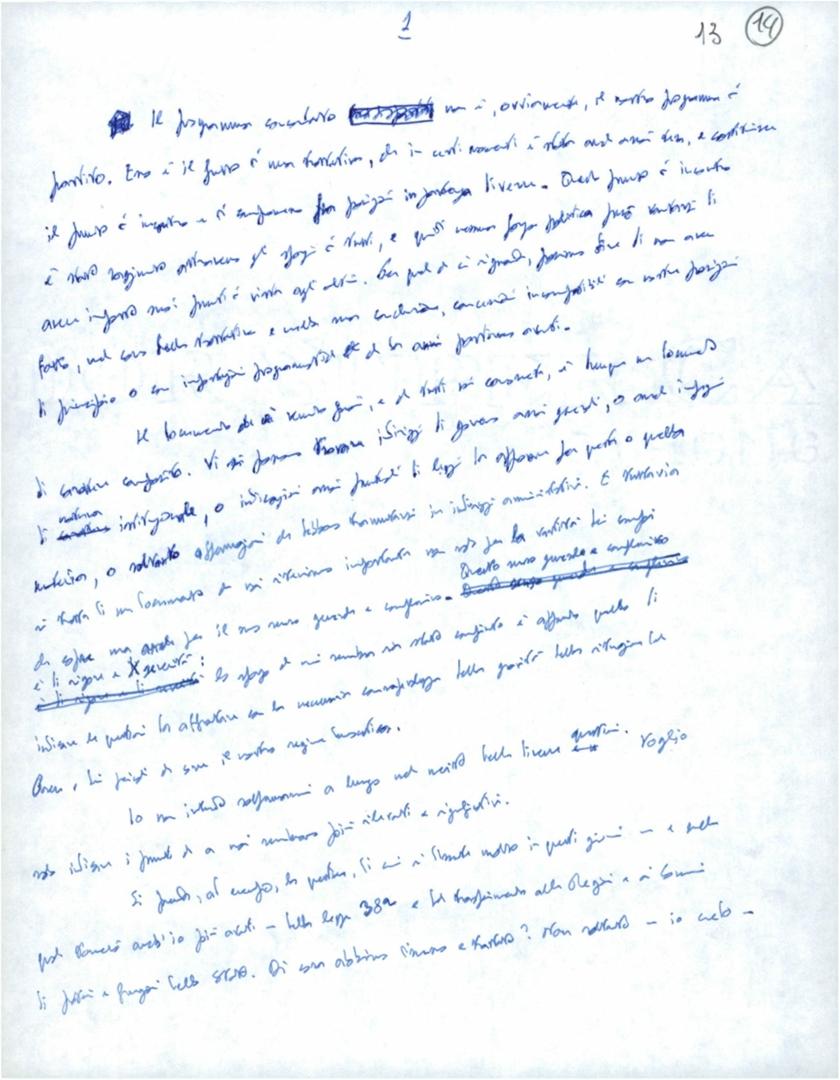 1
13 14
Il programma concordato non è, ovviamente, il nostro programma di
partito. Esso è il frutto di una trattativa, che in certi momenti è stata anche assai tesa, e costituisce
il punto di incontro e di compromesso fra posizioni in partenza diverse. Questo punto di incontro
è stato raggiunto attraverso gli sforzi di tutti, e quindi nessuna forza politica può vantarsi di
aver imposto suoi punti di vista agli altri. Per quel che ci riguarda, possiamo dire di non aver
fatto, nel corso della trattativa e nella sua conclusione, concessioni incompatibili con nostre posizioni
di principio o con impostazioni programmatiche che da anni portiamo avanti.
Il documento che è venuto fuori, e che tutti voi conoscete, è dunque un documento
di carattere composito. Vi si possono trovare indirizzi di governo assai precisi, o anche impegni
di natura istituzionale, o indicazioni assai puntuali di leggi da approvare per questa o quella
materia, o soltanto affermazioni che debbono tramutarsi in indirizzi amministrativi. E tuttavia
si tratta di un documento che noi riteniamo importante non solo per la varietà dei campi
che copre ma anche per il suo senso generale e complessivo. Questo senso generale e complessivo
è di rigore e severità: lo sforzo che a noi sembra sia stato compiuto è appunto quello di
indicare le questioni da affrontare con la necessaria consapevolezza della gravità della situazione del
Paese, e dei pericoli che corre il nostro regime democratico.
Io non intendo soffermarmi a lungo nel merito delle diverse questioni. Voglio
solo indicare i punti che a noi sembrano più rilevanti e significativi.
Si prenda, ad esempio, la questione, di cui si discute molto in questi giorni — e sulla
quale tornerò anch'io più avanti — della legge 382 e del trasferimento alle Regioni e ai Comuni
di poteri e funzioni dello Stato. Di cosa abbiamo discusso e trattato? Non soltanto — io credo —